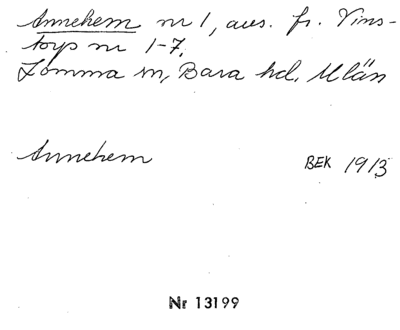 Annehem nr 1, avs. fr. Vins-
torp nr 1-7,
Lomma sn, Bara hd, M län
Annehem BEK 1913
Nr 13199